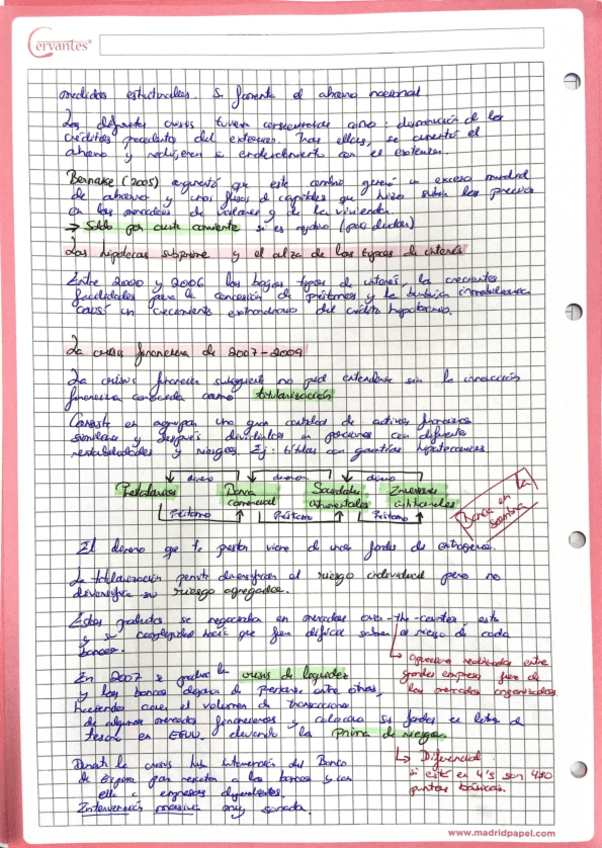 Cervantes
medidas estructurales. Se fomenta el ahorro nacional
Las diferentes crisis tuvieron consecuencias como: disminución de los
créditos procedentes del exterior. Tras ellas, se aumentó el
ahorro y redujeron su endeudamiento con el exterior.
Bernanke (2005) argumentó que este cambio generó un exceso mundial
de ahorro y unos flujos de capitales que hizo subir los precios
en los mercados de valores y de la vivienda
→ Saldo por cuenta corriente si es negativo
Las hipotecas subprime y el alza de los tipos de interés
Entre 2000 y 2006 los bajos tipos de interés, la crecientes
facilidades para la concesión de préstamos y la burbuja inmobiliaria
causó un crecimiento extraordinario del crédito hipotecario.
La crisis financiera de 2007-2009
La crisis financiera no pued entenderse sin la innovación
financiera conocida como titularización
Consiste en agrupar una gran cantidad de activos financieros
similares y después dividirlos en porciones con diferente
rentabilidades y riesgos. Ej: títulos con garantías hipotecarias
dinero dinero dinero
Prestatarios Banca comercial Sociedades Inversores
Préstamo Préstamo Préstamo
Banca en la sombra
El dinero que te prestan viene de unos fondos de
La titularización permite diversificar el riesgo individual pero no
diversifica su riesgo agregado.
Estos productos se negociaban en mercados over-the-counter, esto
y su complejidad hacía que fuera difícil saber el riesgo de cada
banco.
↳ Operaciones realizadas entre
grandes empresas fuera de
los mercados organizados
En 2007 se produce la crisis de liquidez
y los bancos dejan de prestarse entre otros,
haciendo caer el volumen de transacciones
de algunos mercados financieros y colocaron sus fondos en letras de
tesoro en EEUU. elevando la prima de riesgo.
↳ Diferencial
si está en 4's son 400
puntos básicos.
Durante la crisis hubo intervención del Banco
de España para rescatar a los bancos y con
ello a empresas dependientes.
Intervención masiva muy sonada.
www.madridpapel.com